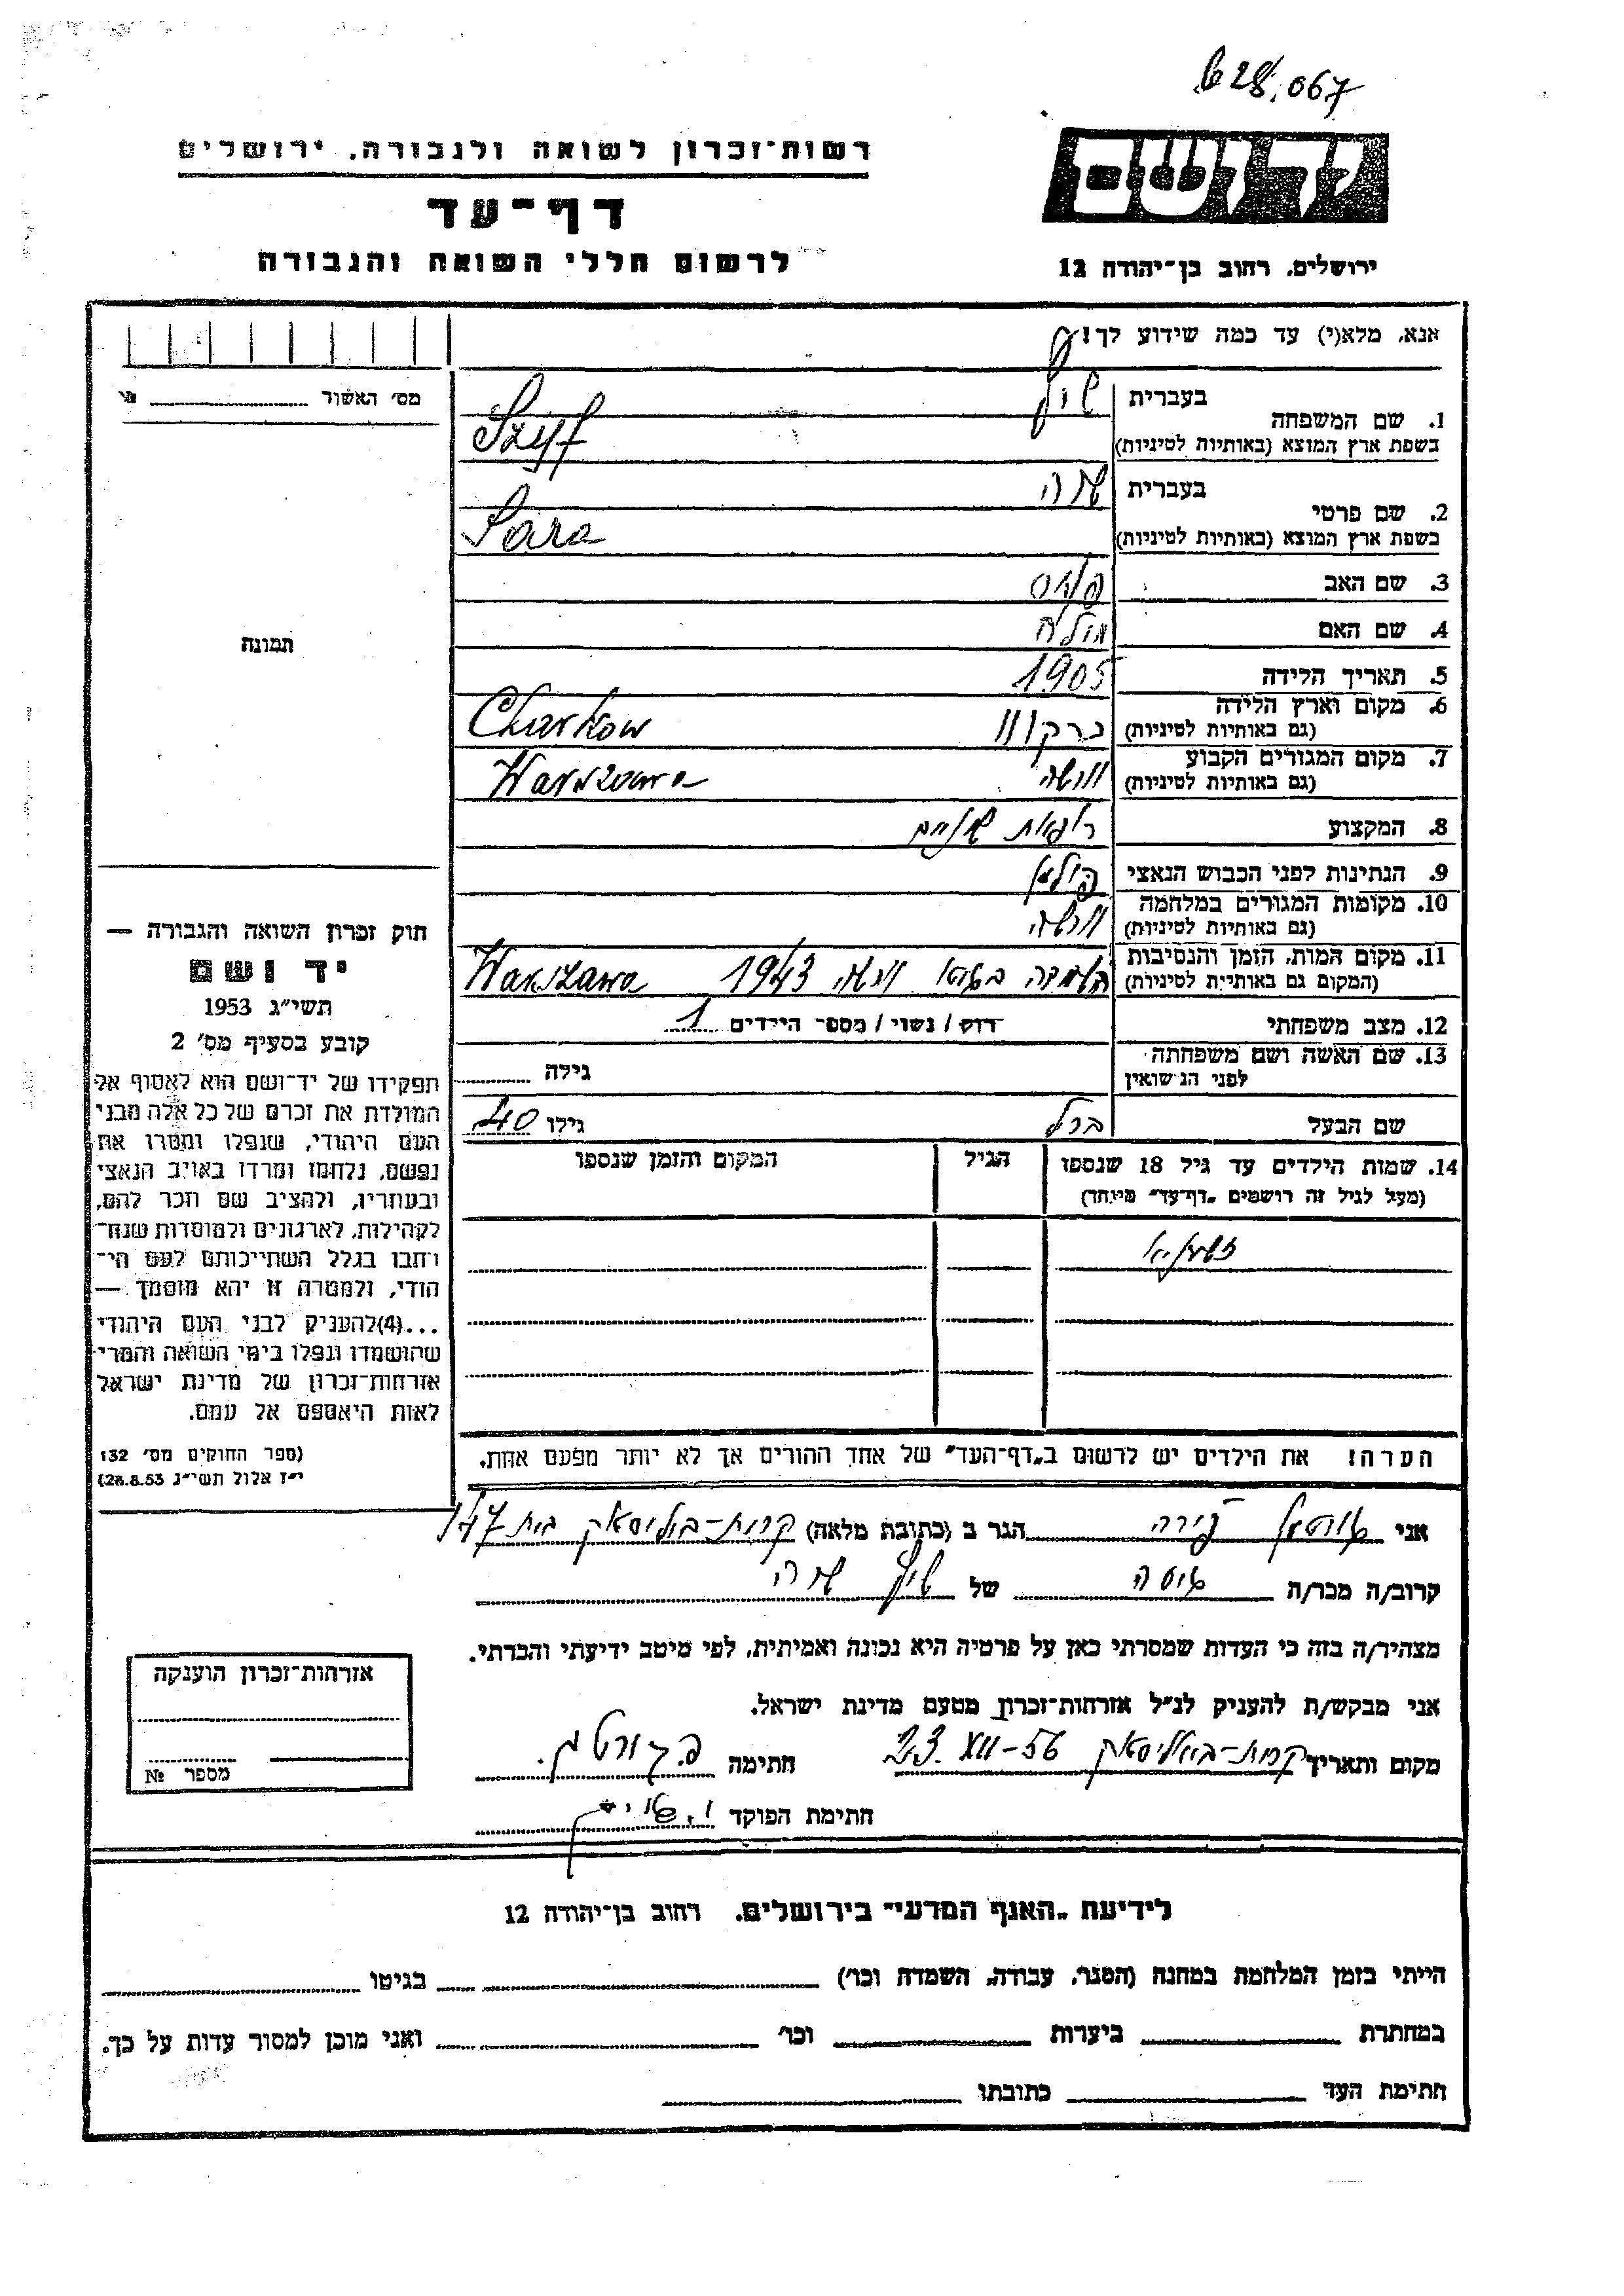 628.067
רשות־זכרון לשואה ולגבורה, ירושלים
דף־עד
לרשום חללי השואה והגבורה
ידושם
ירושלים, רחוב בן־יהודה 12
אנא, מלא(י) עד כמה שידוע לך!
מס׳ האשור №
1. שם המשפחה
בעברית שיף
בשפת ארץ המוצא (באותיות לטיניות) Szyff
2. שם פרטי
בעברית שרה
בשפת ארץ המוצא (באותיות לטיניות) Sara
3. שם האב
4. שם האם
5. תאריך הלידה 1905
6. מקום וארץ הלידה
(גם באותיות לטיניות) כרקווו Charkow
7. מקום המגורים הקבוע
(גם באותיות לטיניות) וורשה Warszawa
8. המקצוע רופאת שניים
9. הנתינות לפני הכבוש הנאצי פולין
10. מקומות המגורים במלחמה
(גם באותיות לטיניות) וורשה
11. מקום המות, הזמן והנסיבות
(המקום גם באותיות לטיניות) בגטו וורשה 1943 Warszawa
12. מצב משפחתי רווק / נשוי / מספר הילדים 1
13. שם האשה ושם משפחתה
לפני הנישואין גילה
שם הבעל ברל גילו 40
14. שמות הילדים עד גיל 18 שנספו
(מעל לגיל זה רושמים „דף־עד״ מיוחד)
הגיל
המקום והזמן שנספו
תמונה
חוק זכרון השואה והגבורה —
יד ושם
תשי״ג 1953
קובע בסעיף מס׳ 2
תפקידו של יד־ושם הוא לאסוף אל
המולדת את זכרם של כל אלה מבני
העם היהודי, שנפלו ומסרו את
נפשם, נלחמו ומרדו באויב הנאצי
ובעוזריו, ולהציב שם וזכר להם,
לקהילות, לארגונים ולמוסדות שנח־
רחבו בגלל השתייכותם לעם הי־
הודי, ולמטרה זו יהא מוסמך —
...(4)להעניק לבני העם היהודי
שהושמדו ונפלו בימי השואה והמרי
אזרחות־זכרון של מדינת ישראל
לאות היאספם אל עמם.
(ספר החוקים מס׳ 132
י״ז אלול תשי״ג 28.8.53)
הערה! את הילדים יש לרשום ב„דף־העד״ של אחד ההורים אך לא יותר מפעם אחת.
אני הגר ב (כתובת מלאה) קרית-ביאליסטוק בית 147
קרוב/ה מכר/ה גיסה של שיף שרה
מצהיר/ה בזה כי העדות שמסרתי כאן על פרטיה היא נכונה ואמיתית, לפי מיטב ידיעתי והכרתי.
אני מבקש/ת להעניק לנ״ל אזרחות־זכרון מטעם מדינת ישראל.
מקום ותאריך קרית-ביאליסטוק 23. XII-56 חתימה
חתימת הפוקד
אזרחות־זכרון הוענקה
מספר №
לידיעת „האגף המדעי״ בירושלים, רחוב בן־יהודה 12
הייתי בזמן המלחמה במחנה (הסגר, עבודה, השמדה וכו׳) בגיטו
במחתרת ביערות וכו׳ ואני מוכן למסור עדות על כך.
חתימת העד כתובתו